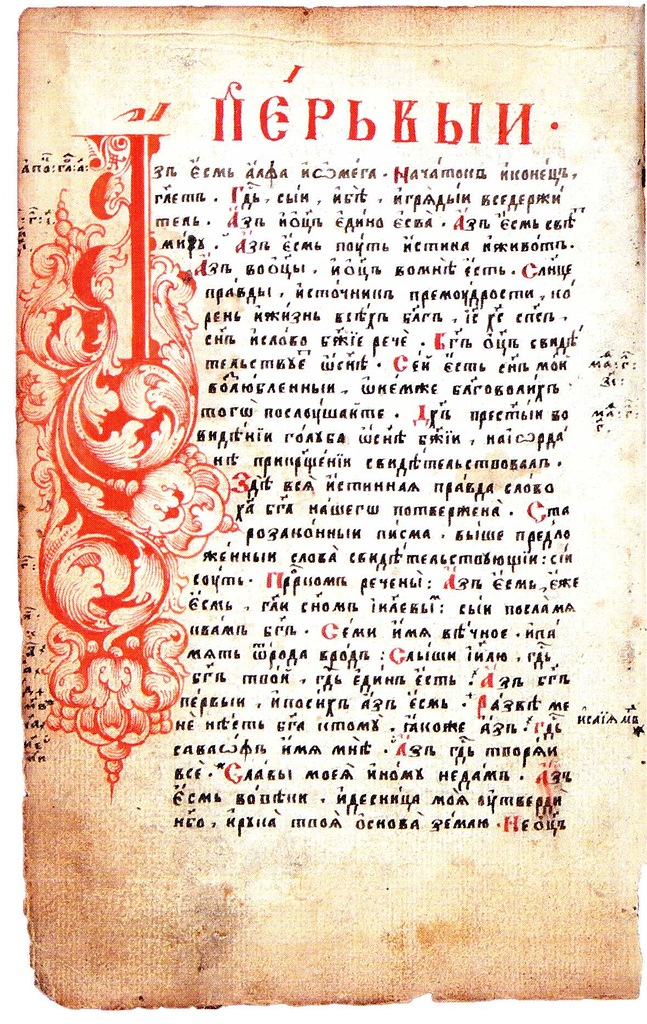 ПЕ́РЬВЫИ ·
зъ є҆смь а҆лфа и҆ѡмега · Начатокъ и҆конецъ ,
гл҃етъ · Гдⷭ҇ь , сыи , и҆бѣ , и҆грѧдыи вседержи
тель · А҆зъ и҆ѻц҃ъ є҆дино є҆сва · А҆зъ є҆смь свѣⷮ
миру · А҆зъ є҆смь поуть и҆стина и҆животъ ·
А҆зъ воѻц҃ы , и҆ѻц҃ъ вомнѣ є҆сть · Сл҃нце
правды , и҆сточникъ премоудрости , ко
рень и҆жизнь всѣхъ бл҃гъ , і҆с҃ хс҃ сп҃съ ,
сн҃ъ и҆слово бж҃їе рече · Бг҃ъ ѻц҃ъ свидѣ
тельствуетъ ѡ҆сн҃ѣ · Сей є҆сть сн҃ъ мой
возлюбленныи , ѡ҆немже бл҃говолихъ
тогѡ послоушайте · Дх҃ъ прест҃ыи во
видѣнїи голуба ѡ҆сн҃ѣ бж҃їи , наі҆ѻрда
нѣ прикрщ҃енїи свидѣтельствовалъ .
Здѣ всѧ и҆стиннаѧ правда слово
хⷭ҇а бг҃а нашегѡ потвержена · Ста
розаконныи писма , выше предло
женныи слова свидѣтельствующїи : сїи
соуть · Прⷪ҇ркомъ речены : А҆зъ є҆смь , є҆же
є҆смь , гл҃и сномъ і҆и҃левымъ : сыи посламѧ
квамъ бг҃ъ · Семи и҆мѧ вѣчное · и҆па
мѧть ѿрода вродъ : Слыши і҆и҃лю , гдⷭ҇ь
бг҃ъ твой , гдⷭ҇ь є҆динъ є҆сть · А҆зъ бг҃ъ
первыи , и҆посихъ а҆зъ є҆смь · Развѣ ме
не нѣсть бг҃а ктому , ꙗ҆коже а҆зъ · Гдⷭ҇ь
саваѡфъ и҆мѧ мнѣ · А҆зъ гдⷭ҇ь творѧи
всѐ · Славы моеѧ и҆ному недамъ · А҆зъ
є҆смь вовѣки , и҆десница моѧ оутверди
нб҃о , и҆рука твоѧ ѻ҆снова землю · Не ѻц҃ъ
исаїѧ мв